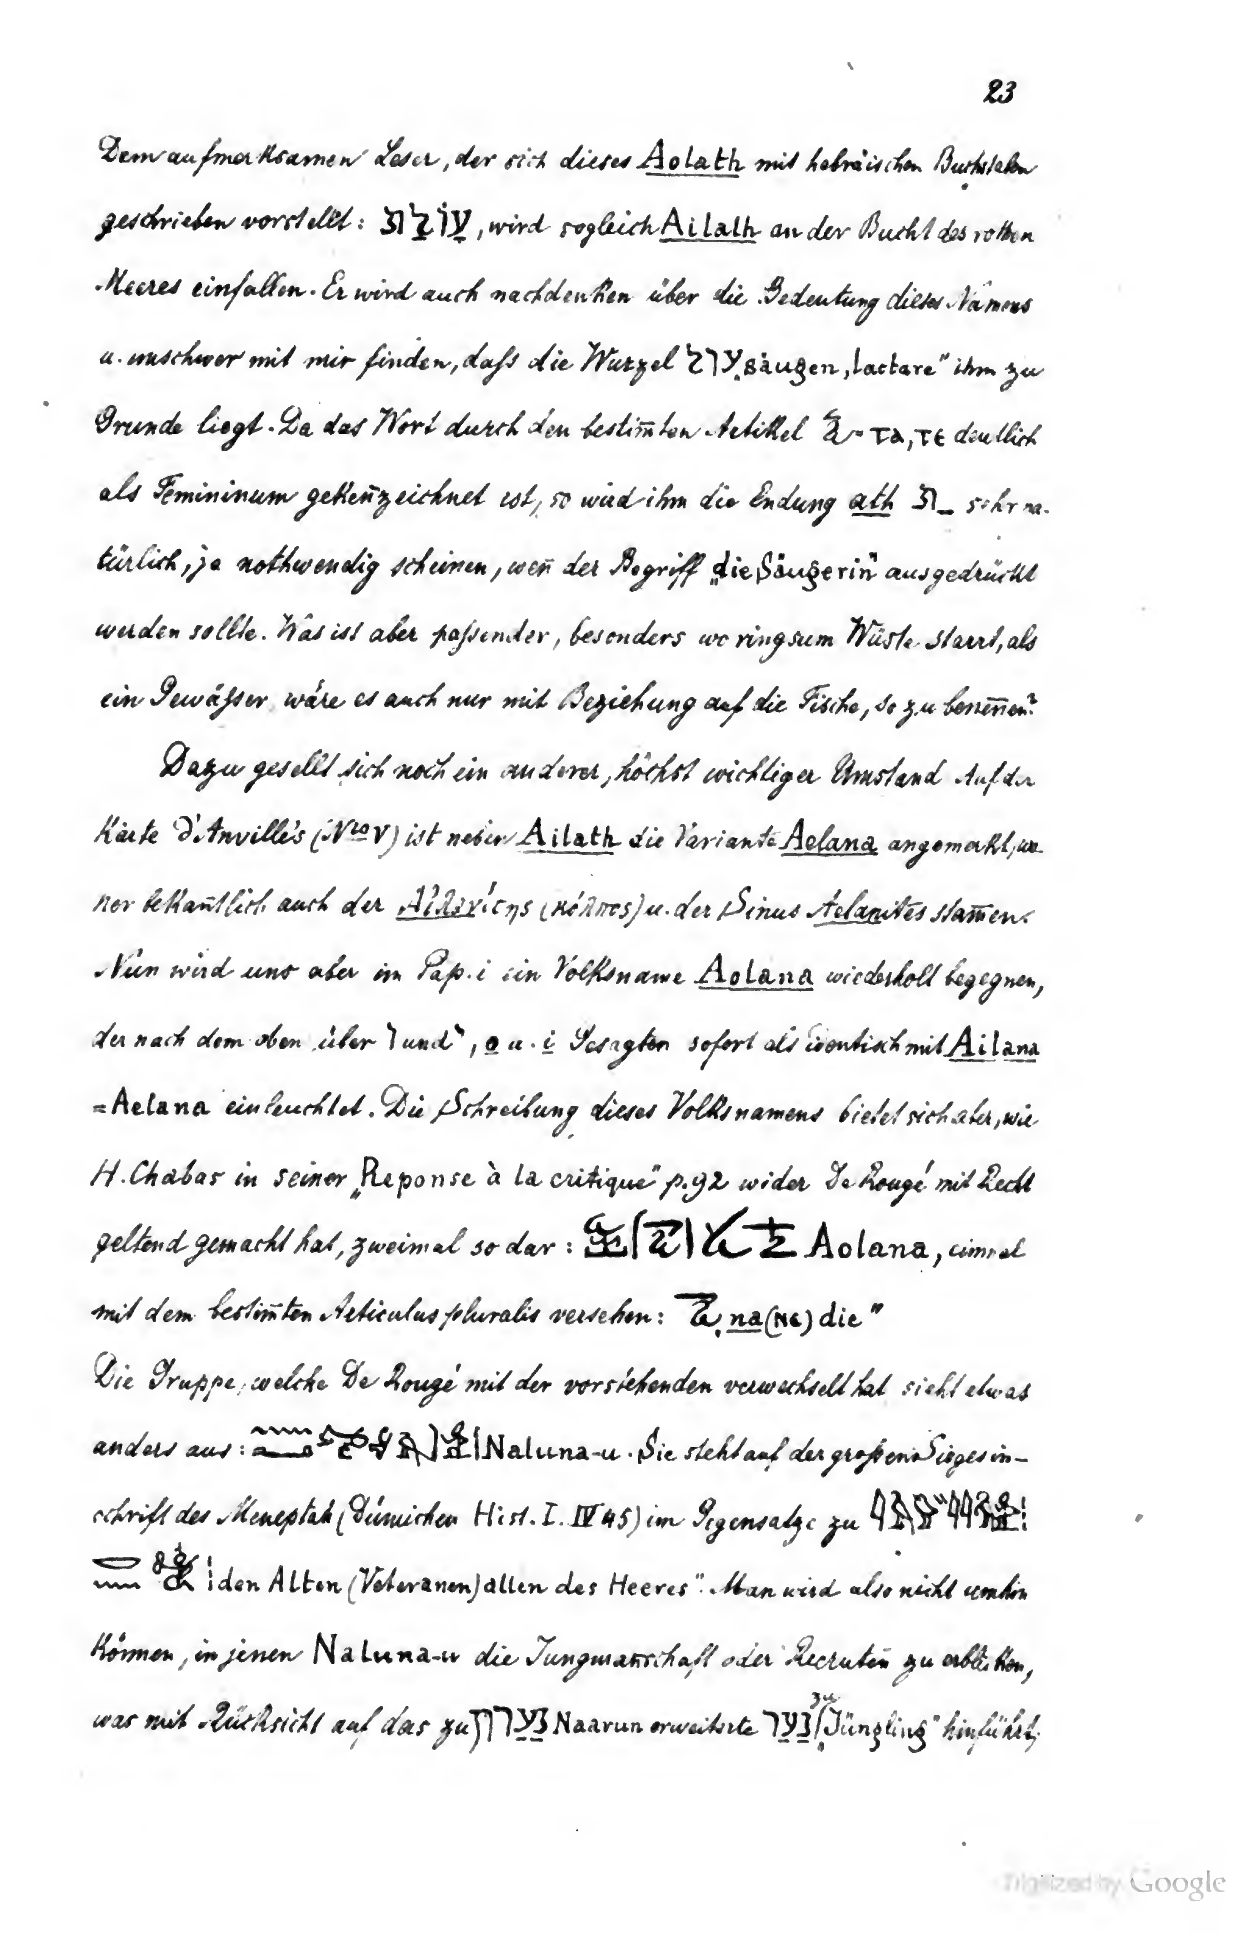 23
Dem aufmerksamen Leser, der sich dieses Aolath mit hebräischen Buchstaben
geschrieben vorstellt: עולת, wird sogleich Ailath an der Bucht des rothen
Meeres einfallen. Er wird auch nachdenken über die Bedeutung dieses Namens
u. unschwer mit mir finden, daſs die Wurzel עול „säugen, lactare" ihm zu
Grunde liegt. Da das Wort durch den bestim̄ten Artikel = ⲧⲁ, ⲧⲉ deutlich
als Femininum geken̄zeichnet ist, so wird ihm die Endung ath ת_ sehr na-
türlich, ja nothwendig scheinen, wen̄ der Begriff „die Säugerin" ausgedrückt
werden sollte. Was ist aber paſsender, besonders wo ringsum Wüste starrt, als
ein Gewäſser, wäre es auch nur mit Beziehung auf die Fische, so zu benen̄en?
Dazu gesellt sich noch ein anderer, höchst wichtiger Umstand. Auf der
Karte d'Anville's (Nro V) ist neben Ailath die Variante Aelana angemerkt, wo-
her bekan̄tlich auch der (κόλπος) u. der Sinus Aelanites stam̄en.
Nun wird uns aber im Pap. i ein Volksname Aolana wiederholt begegnen,
der nach dem oben über ו und י, o u. i Gesagten sofort als identisch mit Ailana
=Aelana einleuchtet. Die Schreibung dieses Volksnamens bietet sich aber, wie
H. Chabas in seiner „Reponse à la critique" p. 92 wider De Rougé mit Recht
geltend gemacht hat, zweimal so dar: Aolana, einmal
mit dem bestim̄ten Articulus pluralis versehen: na (ⲛⲉ) die"
Die Gruppe, welche De Rougé mit der vorstehenden verwechselt hat sieht etwas
anders aus: Naluna-u. Sie steht auf der groſsen Siegesin-
schrift des Meneptah (Dümichen Hist. I. IV 45) im Gegensatze zu
den Alten (Veteranen) allen des Heeres". Man wird also nicht umhin
können, in jenen Naluna-u die Jungman̄schaft oder Recruten zu erblicken,
was mit Rücksicht auf das zu נערון Naarun erweiterte נער „Jüngling" hinführt;
Digitized by Google